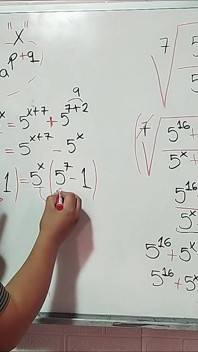 "x"
a^{p+q}
x = 5^{x+7} + 5^{7+2}
9
= 5^{x+7} - 5^x
1) = 5^x (5^7 - 1)
7√ 5
5
(7√ 5^{16} +
5^x +
5^{16}
5^x
5^{16} + 5^x
5^{16} + 5^x